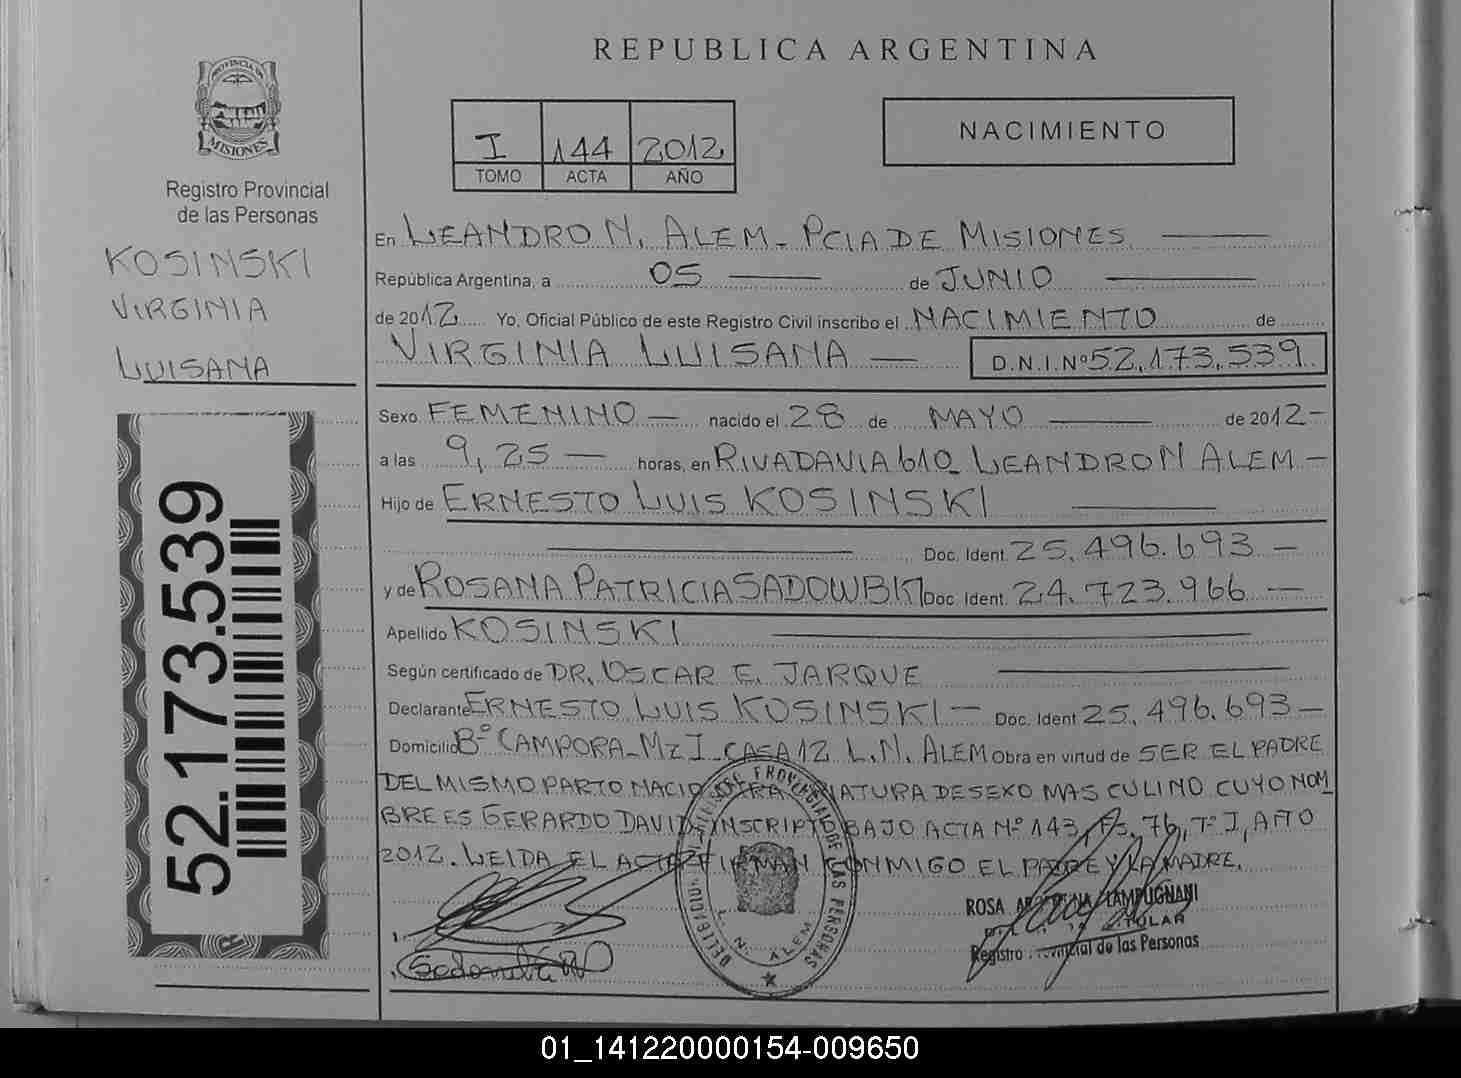 REPUBLICA ARGENTINA
PROVINCIA DE
MISIONES
Registro Provincial
de las Personas
KOSINSKI
VIRGINIA
LUISANA
52.173.539
I 144 2012
TOMO ACTA AÑO
NACIMIENTO
En LEANDRO N. ALEM - PCIA DE MISIONES
República Argentina, a 05 de JUNIO
de 2012 Yo, Oficial Público de este Registro Civil inscribo el NACIMIENTO de
VIRGINIA LUISANA — D.N.I. Nº 52.173.539
Sexo FEMENINO — nacido el 28 de MAYO — de 2012 -
a las 9,25 — horas, en RIVADAVIA 610 - LEANDRO N ALEM -
Hijo de ERNESTO LUIS KOSINSKI
Doc. Ident. 25.496.693 —
y de ROSANA PATRICIA SADOWSKI Doc. Ident. 24.723.966 —
Apellido KOSINSKI
Según certificado de DR. OSCAR E. JARQUE
Declarante ERNESTO LUIS KOSINSKI - Doc. Ident 25.496.693 —
Domicilio Bº CAMPORA - MZ I CASA 12 L.N. ALEM Obra en virtud de SER EL PADRE
DEL MISMO PARTO NACIO CRIATURA DE SEXO MASCULINO CUYO NOM
BRE ES GERARDO DAVID, INSCRIPTO BAJO ACTA Nº 143, Fs. 76, Tº I, AÑO
2012. LEIDA EL ACTA FIRMAN CONMIGO EL PADRE Y LA MADRE.
DELEGACION
PROVINCIAL DE LAS PERSONAS
L. N. ALEM
ROSA LAMPUGNANI
TITULAR
Registro Provincial de las Personas
01_141220000154-009650